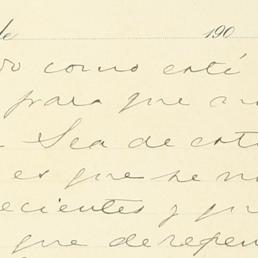 de 190
do como esté
para que no
Sea de esta
es que se no
ecientes y pr
que derepen